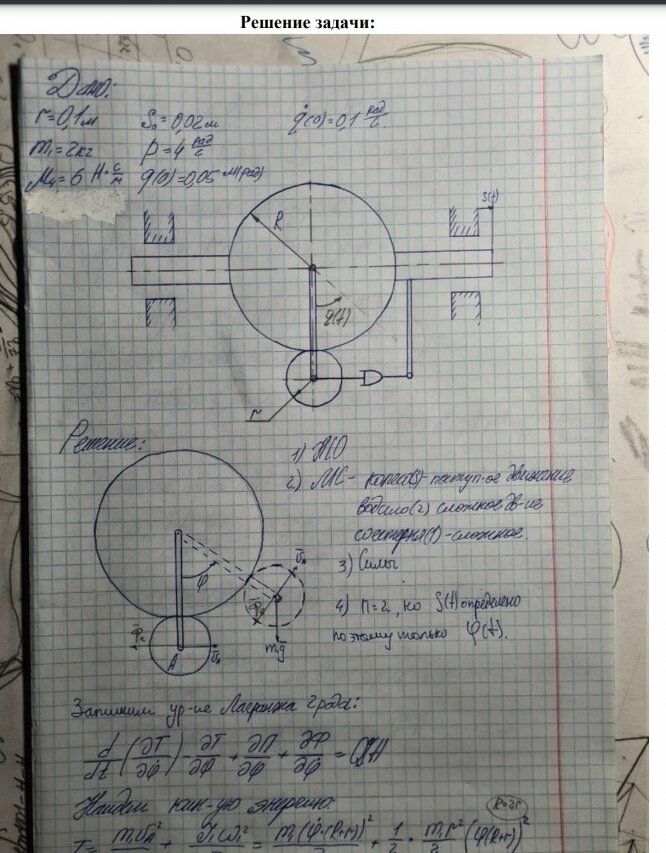 Решение задачи:
Дано:
r=0,1м S₀=0,02м q̇(0)=0,1 рад/с
m₁=2кг p=4 рад/с
μ₄=6 Н·с/м q(0)=0,05 м(рад)
S(t)
R
q(t)
r
Решение:
1) ИСО
2) МС - (3)-поступ-ое движение
водило(2) сложное дв-ие
(1)-сложное.
3) Силы
4) n=2, но S(t) определено
поэтому только φ(t).
φ
A
m₁g
Запишим ур-ие Лагранжа 2 рода:
d/dt(∂T/∂φ̇)-∂T/∂φ+∂П/∂φ+∂Ф/∂φ̇=
Найдем кин-ую энергию: R=2r
T= m₁υ_A²/ + J₁ω₁²/ = m₁(φ̇(R+r))²/2 + 1/2 · m₁r²/2 (φ̇(R+r))²